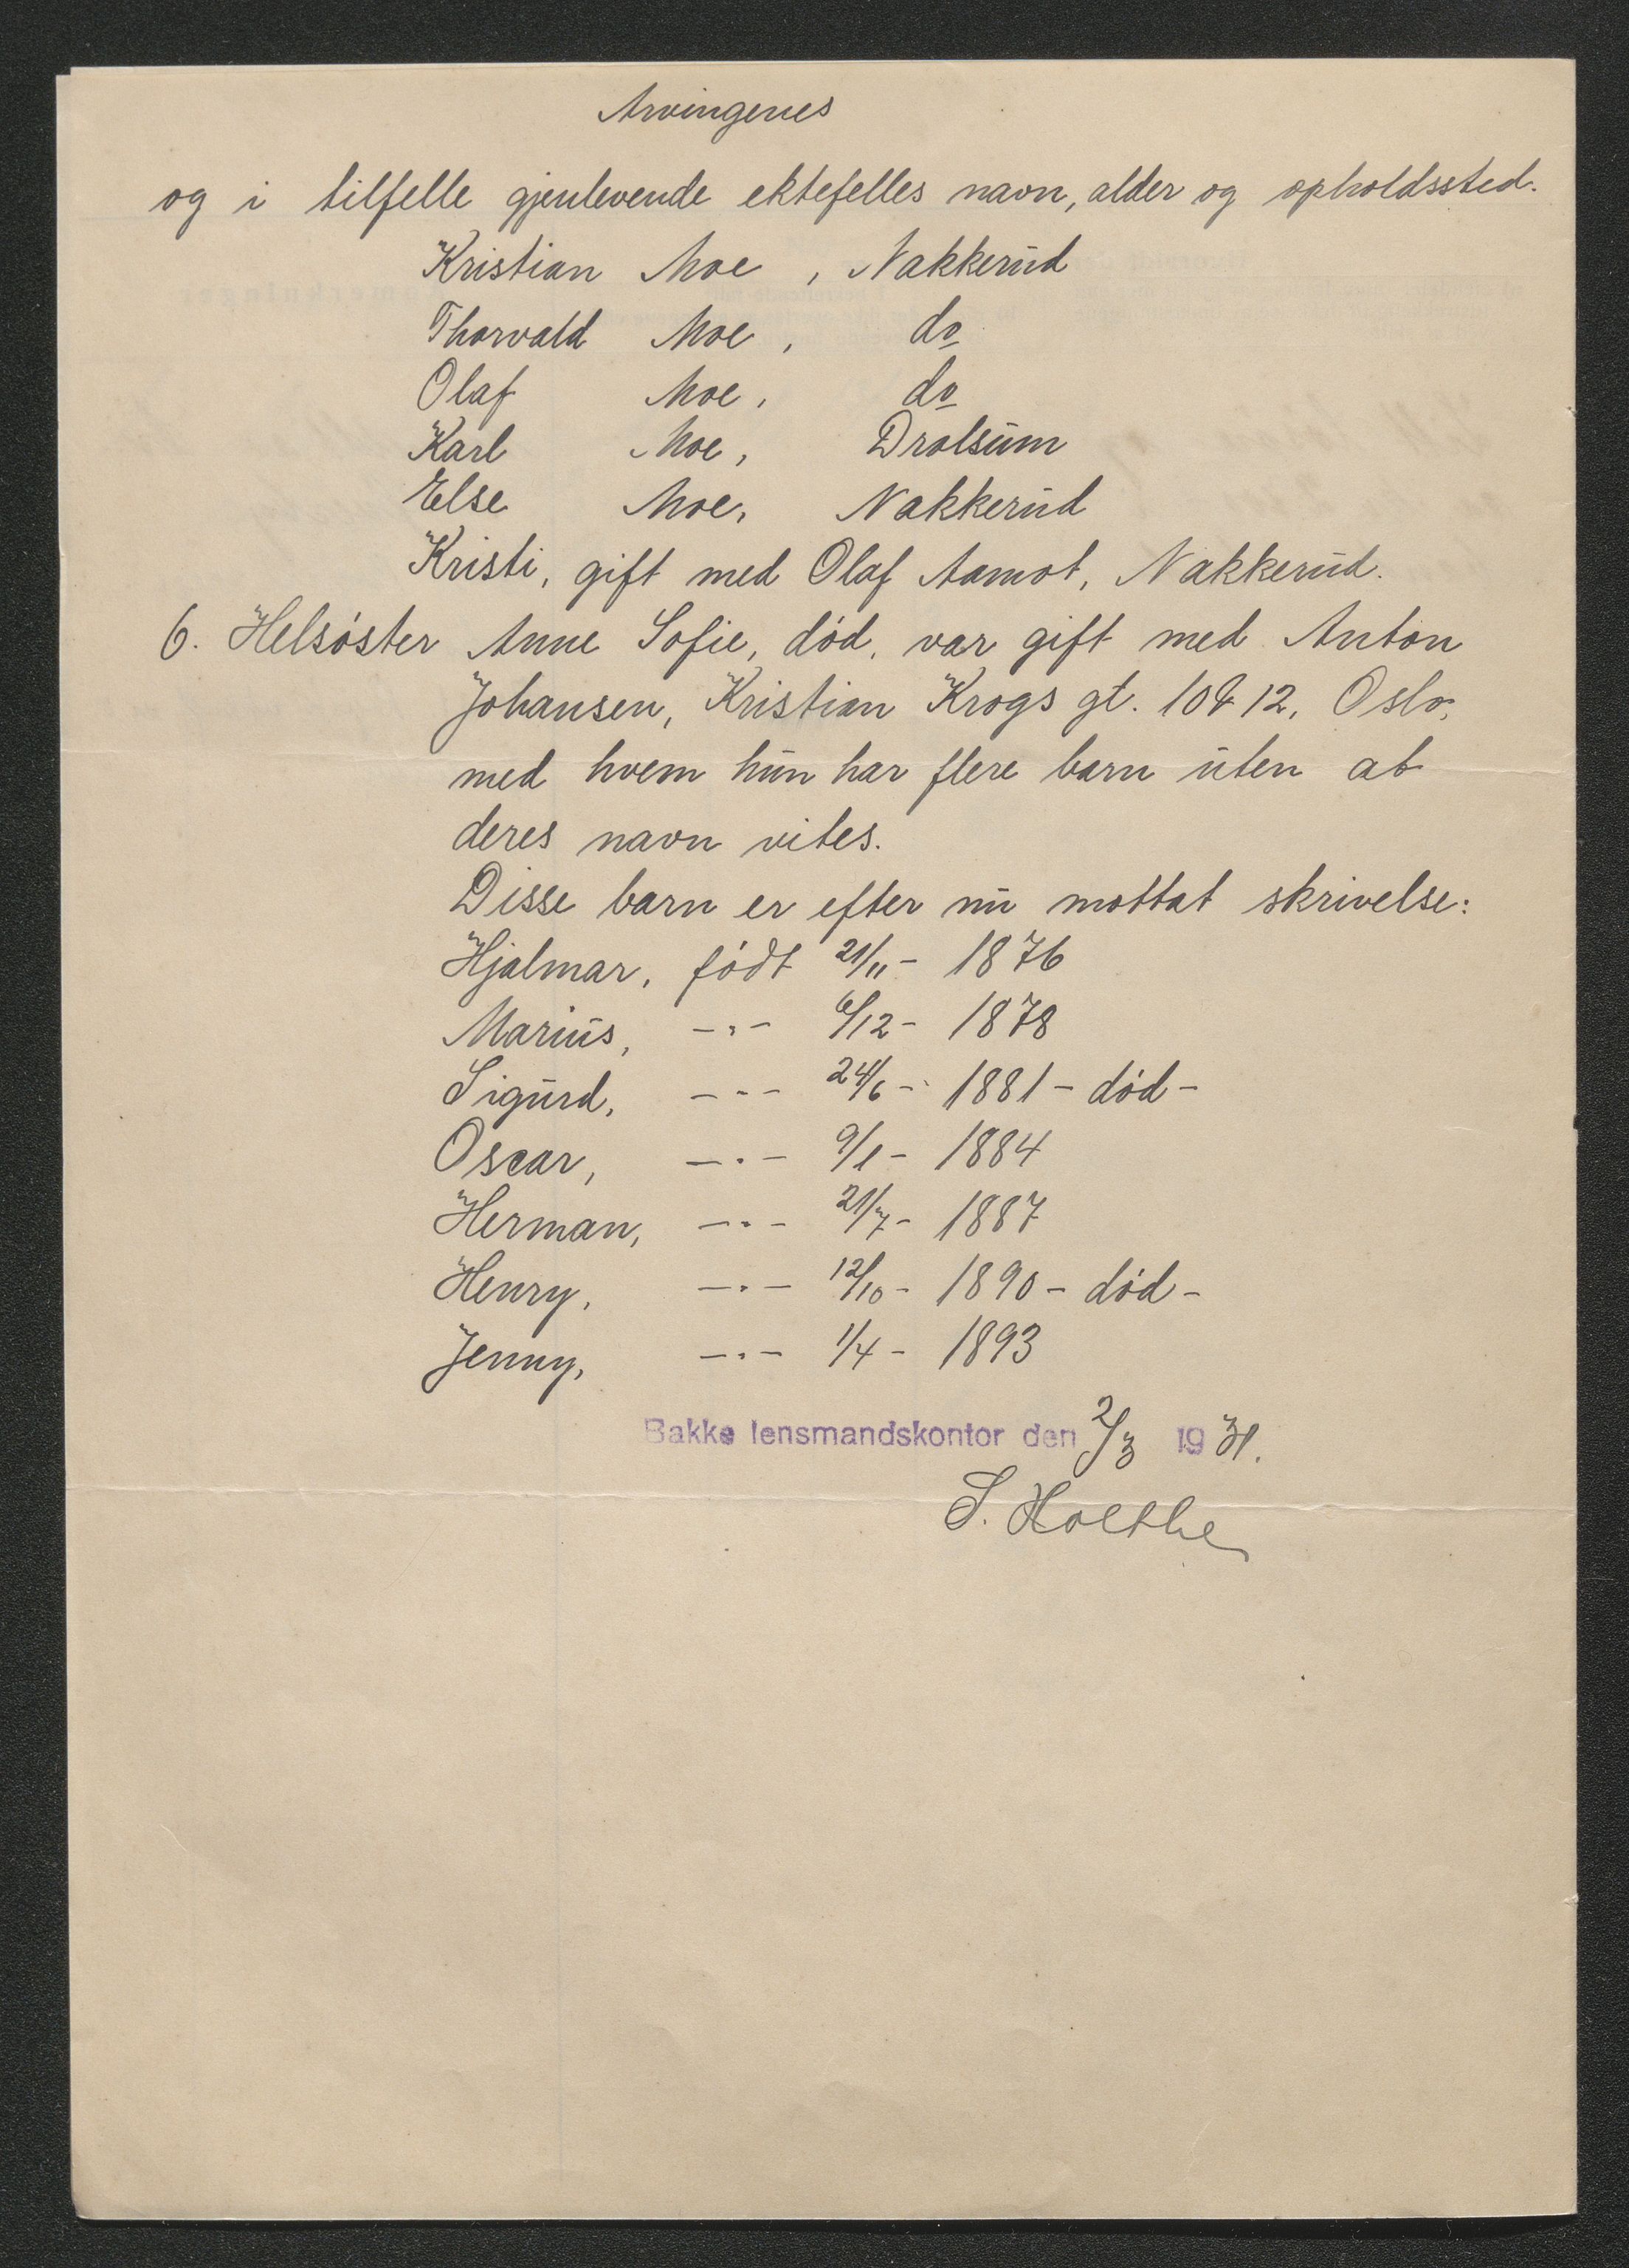 Arvingenes
og i tilfelle gjenlevende ektefelles navn, alder og opholdssted.
Kristian Moe, Nakkerud
Thorvald Moe, do
Olaf Moe, do
Karl Moe, Drolsum
Else Moe, Nakkerud
Kristi, gift med Olaf Aamot, Nakkerud.
6. Helsøster Anne Sofie, død, var gift med Anton
Johansen, Kristian Krogs gt. 10 & 12, Oslo,
med hvem hun har flere barn uten at
deres navn vites.
Disse barn er efter nu mottat skrivelse:
Hjalmar, født 21/11- 1876
Marius, -"- 6/12- 1878
Sigurd, -"- 24/6- 1881 - død -
Oscar, -"- 9/1- 1884
Herman, -"- 21/7- 1887
Henry, -"- 12/10- 1890 - død -
Jenny, -"- 1/4- 1893
Bakke lensmandskontor den 2/3 1931.
S. Holthe